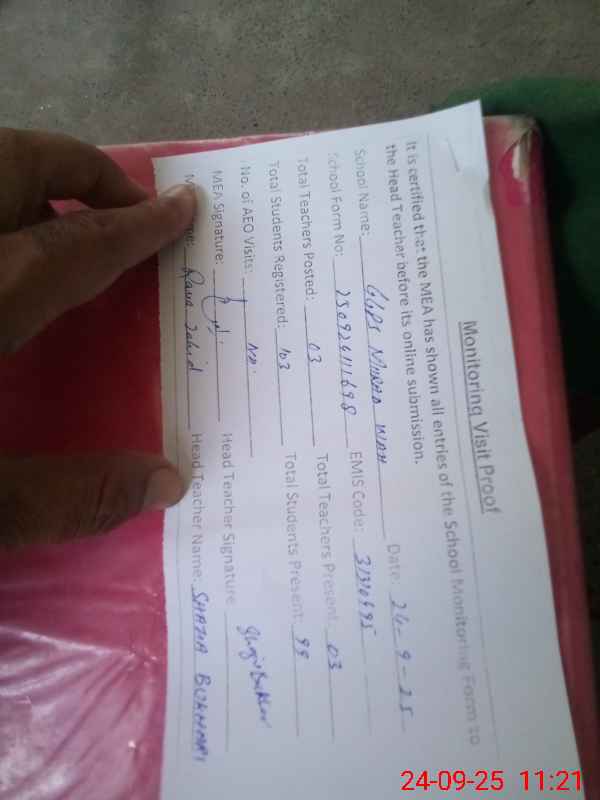 Monitoring Visit Proof
It is certified that the MEA has shown all entries of the School Monitoring Form to
the Head Teacher before its online submission.
Date: 24-9-25
School Name: GGPS MURAD WAH
School Form No: 25092411698 EMIS Code: 31310695
Total Teachers Posted: 03 Total Teachers Present: 03
Total Students Registered: 103 Total Students Present: 99
No. of AEO Visits:
MEA Signature: Head Teacher Signature
Rana Zahid Head Teacher Name: SHAZIA BUKHARI
24-09-25 11:21